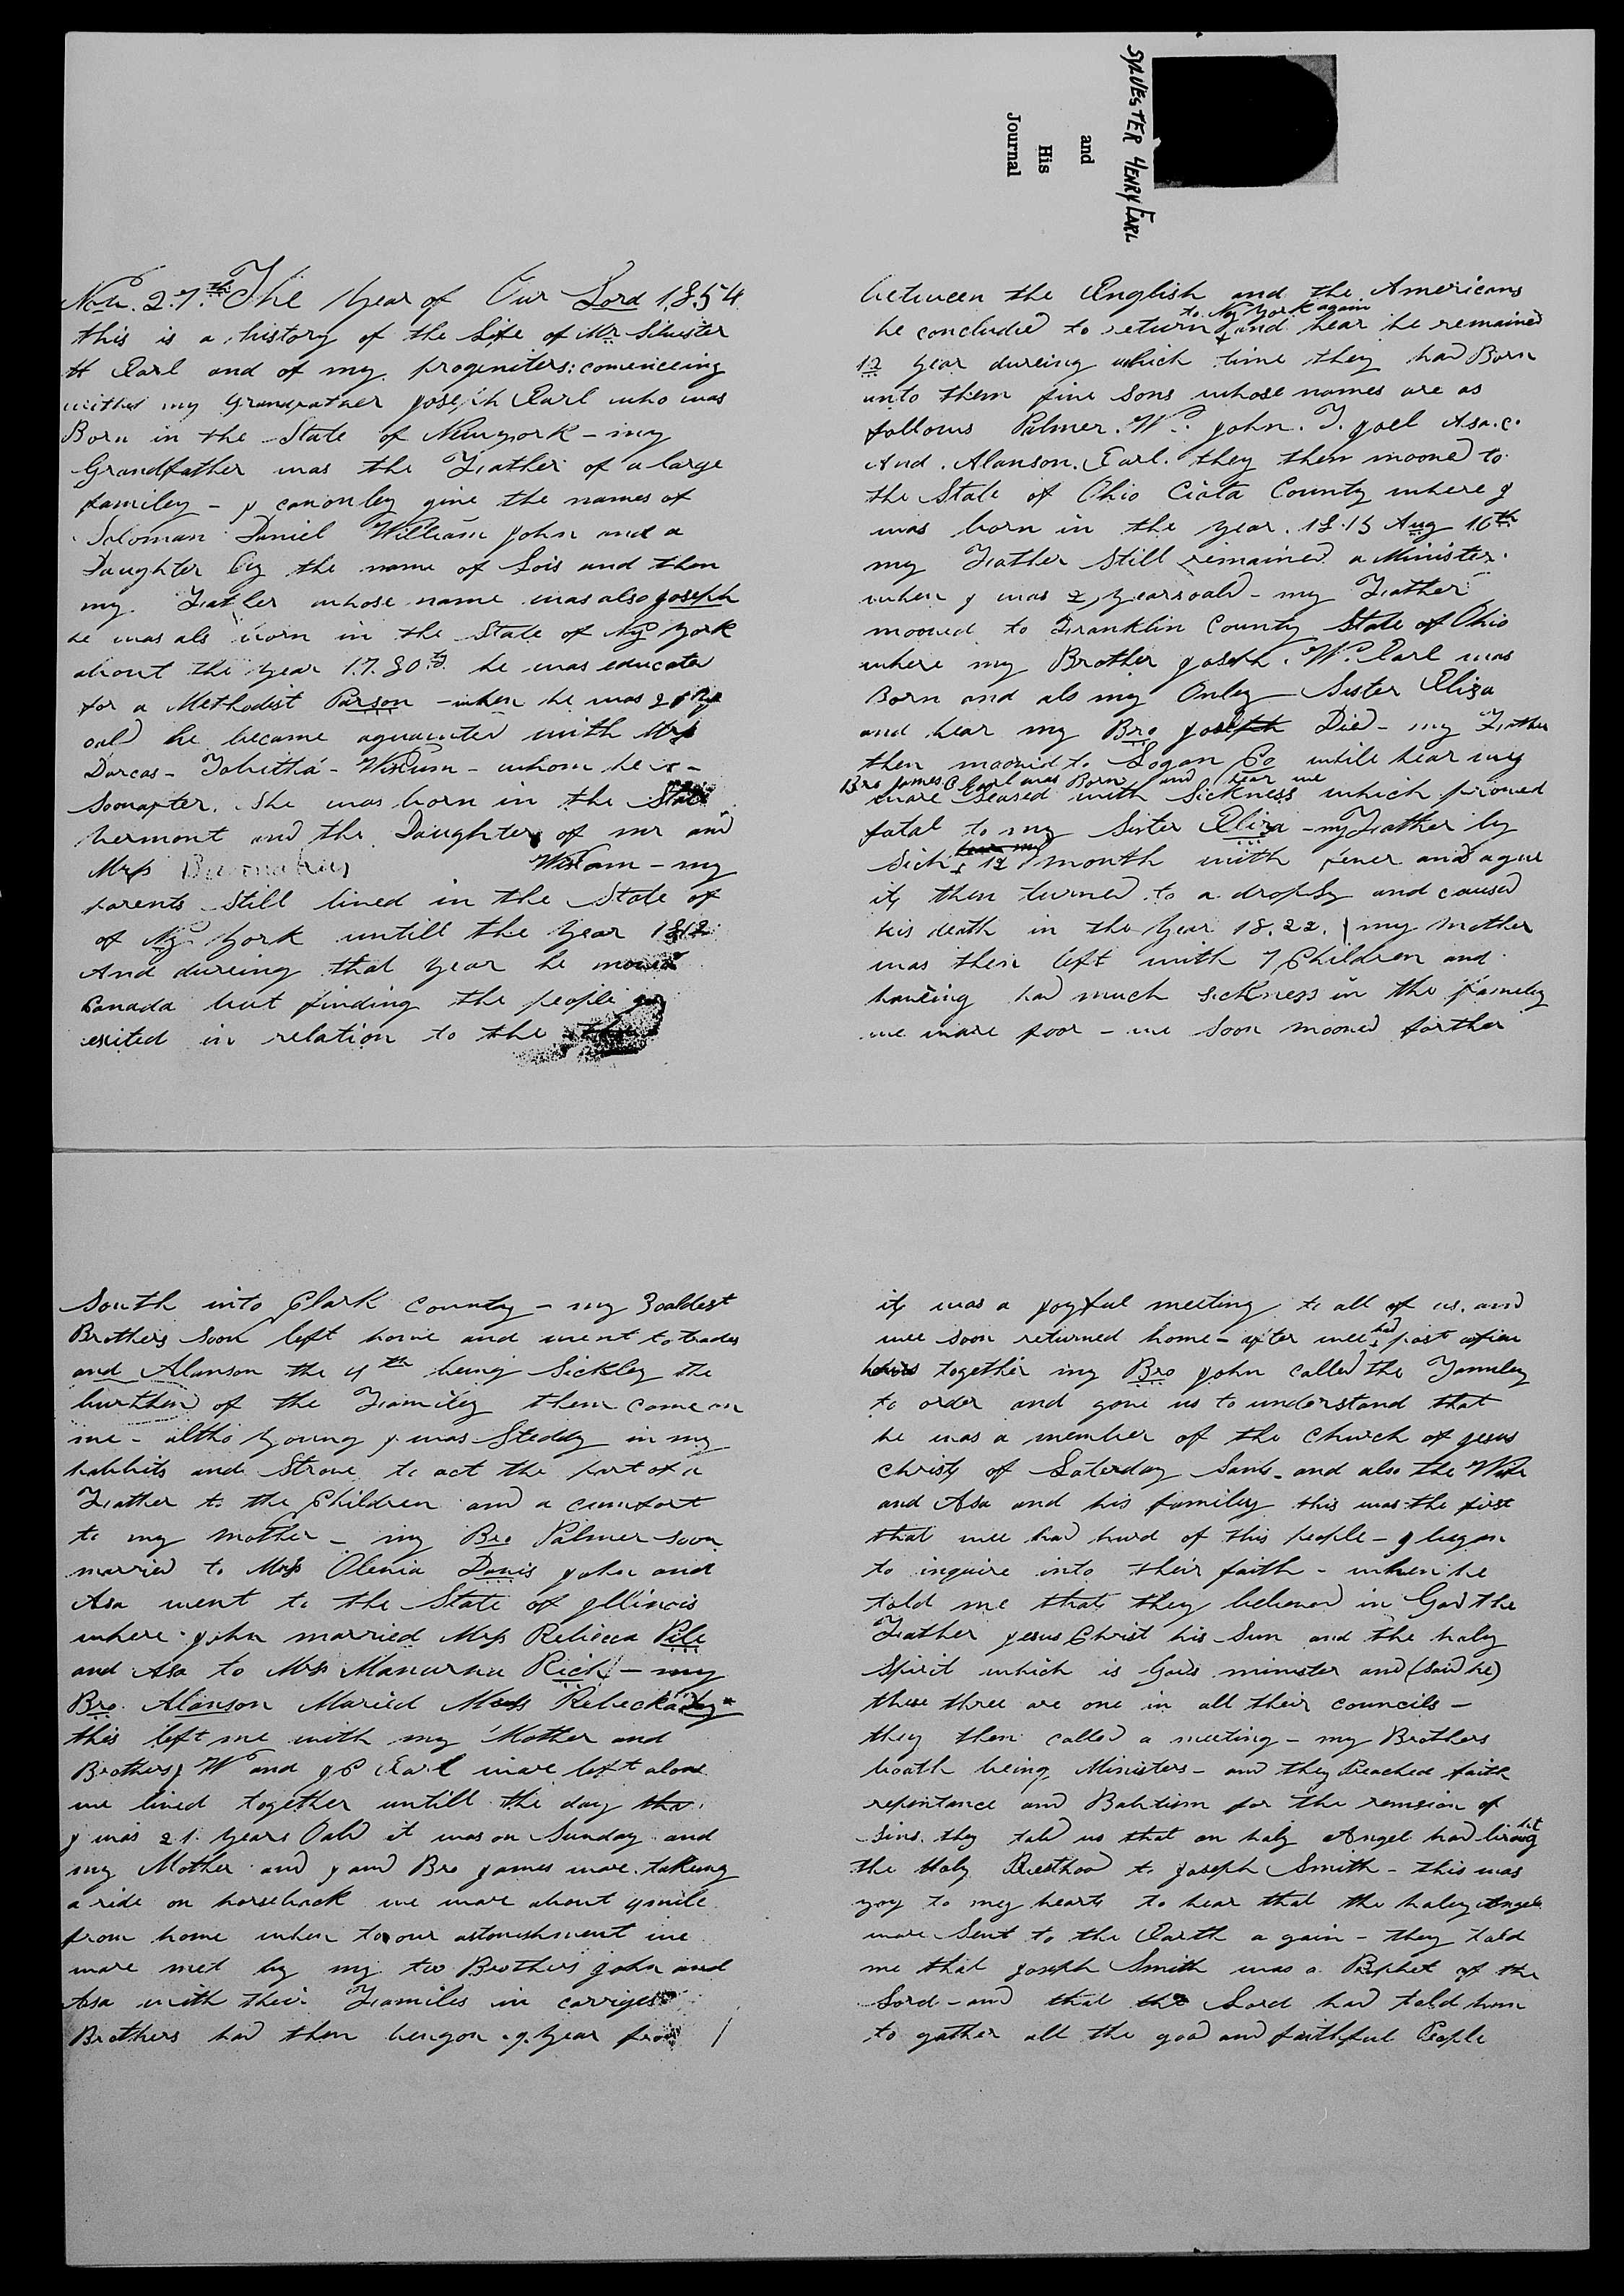 SYLVESTER HENRY EARL
and
His
Journal
Nov. 27.th The Year of Our Lord 1.8.54
this is a history of the Life of Mr Silvester
H Earl and of my progeniters: comenceing
withe my Grandfather Joseph Earl who was
Born in the State of Newyork - my
Grandfather was the Father of a large
familey - I canonley give the names of
Soloman Daniel William John and a
Daughter by the name of Lois and then
my Father whose name was also Joseph
he was als born in the State of Ny York
about the year 17.80 he was educate
for a Methodist Parson - when he was
oald he became aquainted with Mrs
Darcas - Tabitha - Wixum - whom he
Soonafter. She was born in the State
Vermont and the Daughter of mr and
Mrs Wixam - my
parents Still lived in the State of
of Ny York untill the Year 1812
And dureing that Year he moved
Canada but finding the people
exited in relation to the
between the English and the Americans
he concluded to return to Ny York again and hear he remained
12 year dureing which time they had Born
unto them five Sons whose names are as
follows Palmer. W. John. T. Joel Asa. C.
And. Alanson. Earl. they then mooved to
the State of Ohio County where I
was born in the year. 18.15 Aug 16th
my Father Still remained a Minister.
when I was 2 years oald - my Father
mooved to Franklin County State of Ohio
where my Brother Joseph. W. Earl was
Born and als my Onley Sister Eliza
and hear my Bro Joseph Died - my Father
then mooved to Logan Co while hear my
Bro James C Earl was Born and hear we
ware Seased with Sickness which proved
fatal to my Sister Eliza - my Father ly
Sick 12 month with fever and ague
it then turned to a dropsy and caused
his death in the Year 18.22. my mother
was then left with 7 Children and
haveing had much sickness in the familey
we ware poor - we soon mooved farther
South into Clark County - my 3 oaldest
Brothers Soon left home and went to trades
and Alanson the 4th being Sickley the
burthen of the Familey then come on
me - altho Young I was Steddy in my
habbits and Strove to act the part of a
Father to the Children and a cumfort
to my mother - my Bro Palmer soon
married to Mrs Olevia Davis John and
Asa went to the State of Illinois
where John married Mrs Rebecca Pile
and Asa to Mrs Rick - my
Bro. Alanson Maried Mrs Rebecka
this left me with my Mother and
Brothers J W and J C Earl ware left alone
we lived together untill the day tha
I was 21 Years Oald it was on Sunday and
my Mother and I and Bro James ware takeing
a ride on horseback we ware about 4 mile
from home when to our astonishment we
ware met by my two Brothers John and
Asa with their Familes in carriges
Brothers had then bengon 9. Year from
it was a joyful meeting to all of us. and
wee soon returned home - after wee had past afew
hours together my Bro John called the Famley
to order and gave us to understand that
he was a member of the Church of Jesus
Christ of Saterday Sants - and also the Wife
and Asa and his familey this was the first
that wee had hurd of this people - I began
to inquire into their faith - when he
told me that they believed in God the
Father Jesus Christ his Sun and the holy
Spirit which is Gods minister and (said he)
these three are one in all their councils -
they then called a meeting - my Brothers
boath being Ministers - and they Preached faith
repentance and Babtism for the remsion of
Sins. they told us that an holy Angel had brought
the Holy Preesthood to Joseph Smith - this was
joy to my heart to hear that the holey Angels
ware Sent to the Earth a gain - they told
me that Joseph Smith was a Prophet of the
Lord - and that the Lord had told him
to gather all the good and faithful People